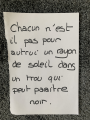 Chacun n'est
il pas pour
autrui un rayon
de soleil dans
un trou qui
peut paraitre
noir.